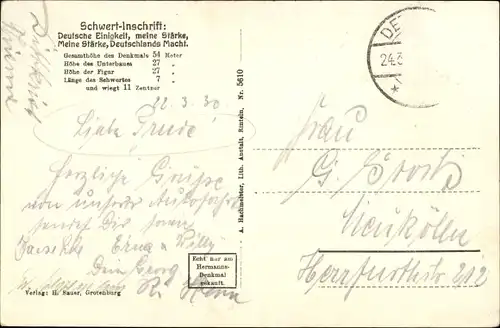 Schwert-Inschrift:
Deutsche Einigkeit, meine Stärke,
Meine Stärke, Deutschlands Macht.
Gesamthöhe des Denkmals 54 Meter
Höhe des Unterbaues 27 "
Höhe der Figur 27 "
Länge des Schwertes 7 "
und wiegt 11 Zentner
22.3.30
Liebe Trude!
Herzliche Grüsse
von unserer Autofahrt
sendet Dir
Erna Willy
Dein Georg
Echt nur am
Hermanns-
Denkmal
gekauft.
Verlag: H. Sauer, Grotenburg
A. Hachmeister, Lith. Anstalt, Rinteln. Nr. 5610
DE
24.3
Frau
G.
Neukölln
Herrfurthstr 212